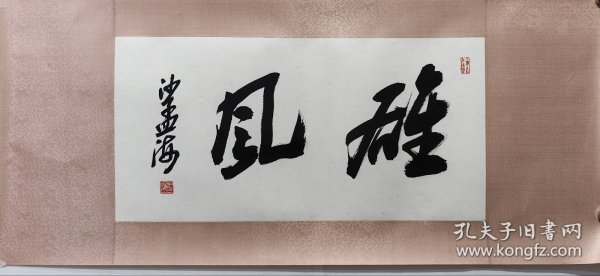 雄风
沙孟海
孔夫子旧书网
www.kongfz.com